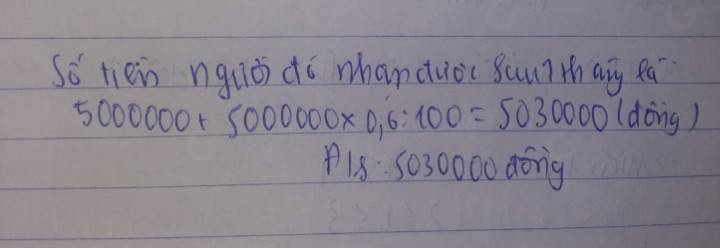 Số tiền người đó nhận được sau 1 tháng là
5000000 + 5000000 × 0,6 : 100 = 5030000 (đồng)
Đ/s: 5030000 đồng